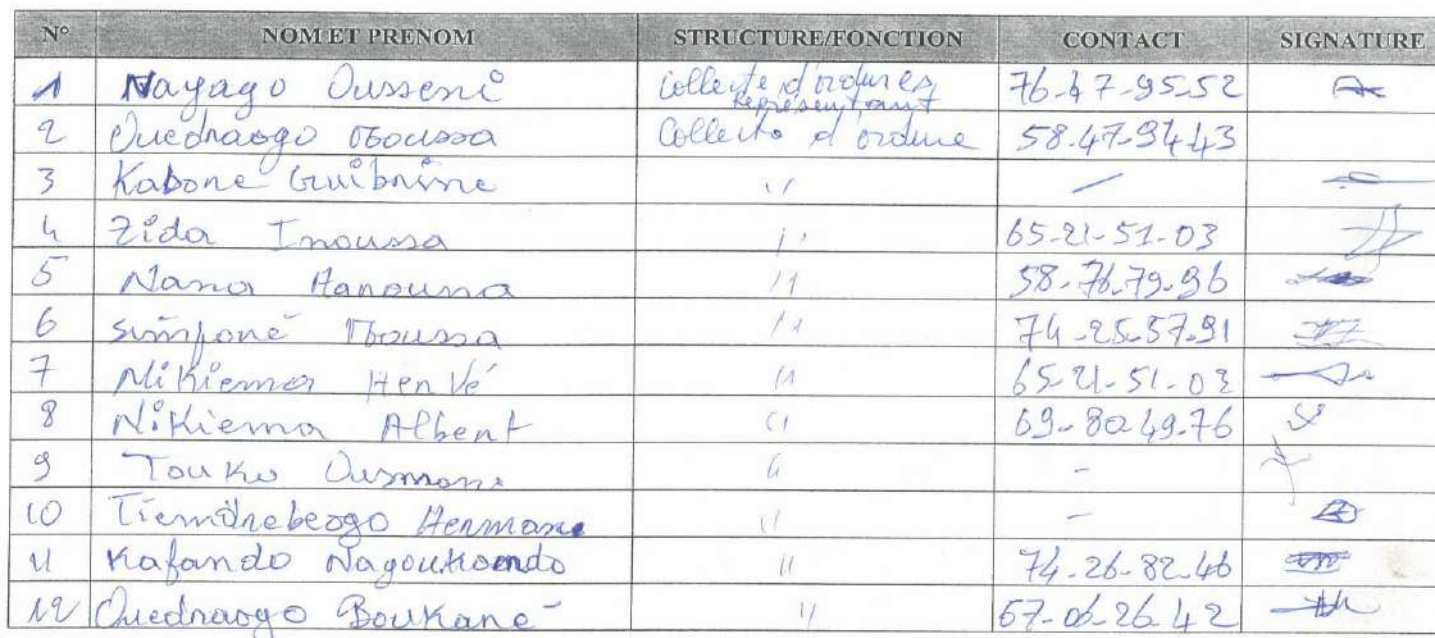 N° NOM ET PRENOM STRUCTURE/FONCTION CONTACT SIGNATURE
1 Nayago Ousseni Collecte d'ordures Représentant 76-47-95-52
2 Ouedraogo Moussa Collecte d'ordure 58.47-94-43
3 Kabone Guibrine " —
4 Zida Inoussa " 65-21-51-03
5 Nana Hanouna " 58-76-79-96
6 Simporé Moussa " 74-25-57-91
7 Nikiema Hervé " 65-21-51-03
8 Nikiema Albert " 69-80-49-76
9 Touko Ousmane " -
10 Tiemdrebeogo Hermane " -
11 Kafando Nagoukoendo " 74-26-82-46
12 Ouedraogo Boukaré " 67-06-26-42